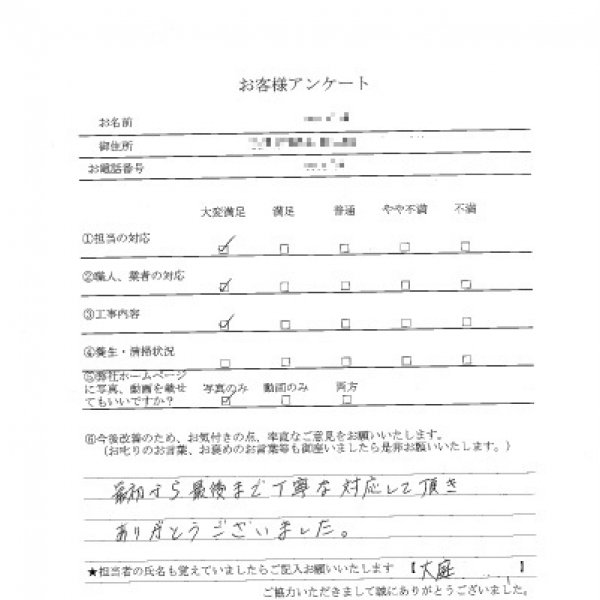 お客様アンケート
お名前
御住所
お電話番号
大変満足 満足 普通 やや不満 不満
①担当の対応
②職人、業者の対応
③工事内容
④養生・清掃状況
⑤弊社ホームページ
に写真、動画を載せ
てもいいですか？
写真のみ 動画のみ 両方
⑥今後改善のため、お気付きの点、率直なご意見をお願いいたします。
（お叱りのお言葉、お褒めのお言葉等も御座いましたら是非お願いいたします。）
最初から最後まで丁寧な対応して頂き
ありがとうございました。
★担当者の氏名も覚えていましたらご記入お願いいたします 【大庭 】
ご協力いただきまして誠にありがとうございました。